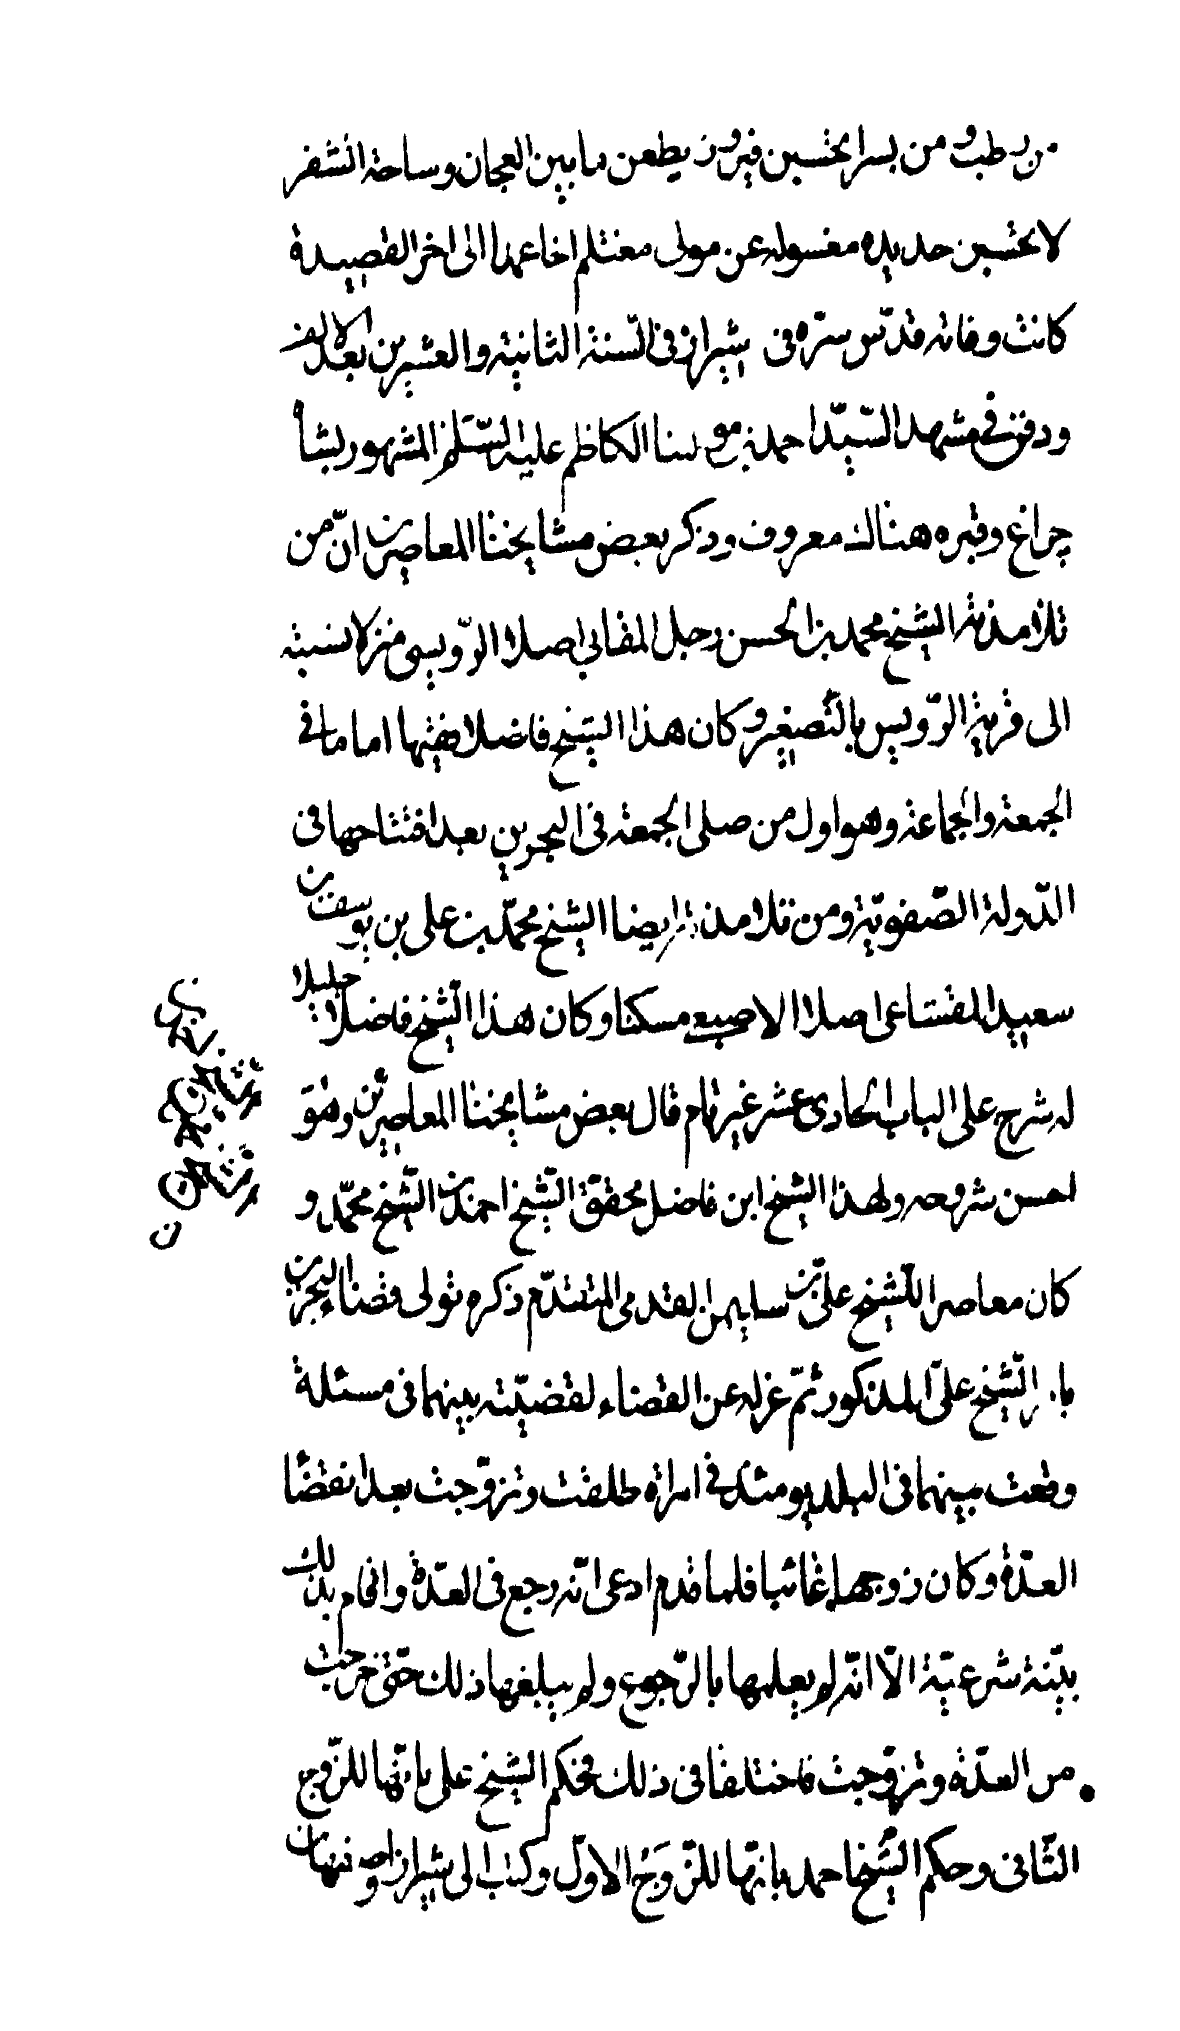 من رطب ومن بسر الحشين فيرون يطعن ما بين العجان وساحة الشفر
لا تحشين حديده مغسوله عن مولى مغتلم اخا عهدا الى اخر القصيدة
كانت وفاته قدّس سرّه فى شيراز فى السّنة الثانية والعشرين بعد الالف
ودفن فى مشهد السّيّد احمد بن مولينا الكاظم عليه السّلم المشهور بشاه
چراغ وقبره هناك معروف وذكر بعض مشايخنا المعاصرين انّ من
تلامذته الشيخ محمد بن الحسن رجل المقابي اصلا الرّويسى منزلا نسبته
الى قرية الرّويس بالتّصغير وكان هذا الشيخ فاضلا فقيها اماما فى
الجمعة والجماعة وهو اول من صلى الجمعة فى البحرين بعد افتتاحها فى
الدّولة الصّفويّة ومن تلامذته ايضا الشيخ محمّد بن على بن يوسف بن
سعيد المقشاعى اصلا الاصبعى مسكنا وكان هذا الشّيخ فاضلا جليلا
له شرح على الباب الحادى عشر غير تام قال بعض مشايخنا المعاصرين وهو
احسن شروحه ولهذا الشيخ ابن فاضل محقق الشّيخ احمد بن الشّيخ محمّد و
كان معاصرا للشّيخ علىّ بن سليمن القدمى المتقدّم ذكره تولى قضاء البحرين
بامر الشّيخ علىّ المذكور ثمّ عزله عن القضاء لقضيّته بينهما فى مسئلة
وقعت بينهما فى البلد يومئذ فى امراة طلقت وتزوّجت بعد انقضا
العدّة وكان زوجها غائبا فلما قدم ادعى انّه رجع فى العدّة واقام بذلك
بيّنة شرعيّة الّا انّه لم يعلمها بالرّجوع ولم يبلغها ذلك حتّى خرجت
من العدّة وتزوّجت فاختلفا فى ذلك فحكم الشيخ على بانّها للزّوج
الثّانى وحكم الشّيخ احمد بانّها للزّوج الاوّل وكتب الى شيراز واصفهان